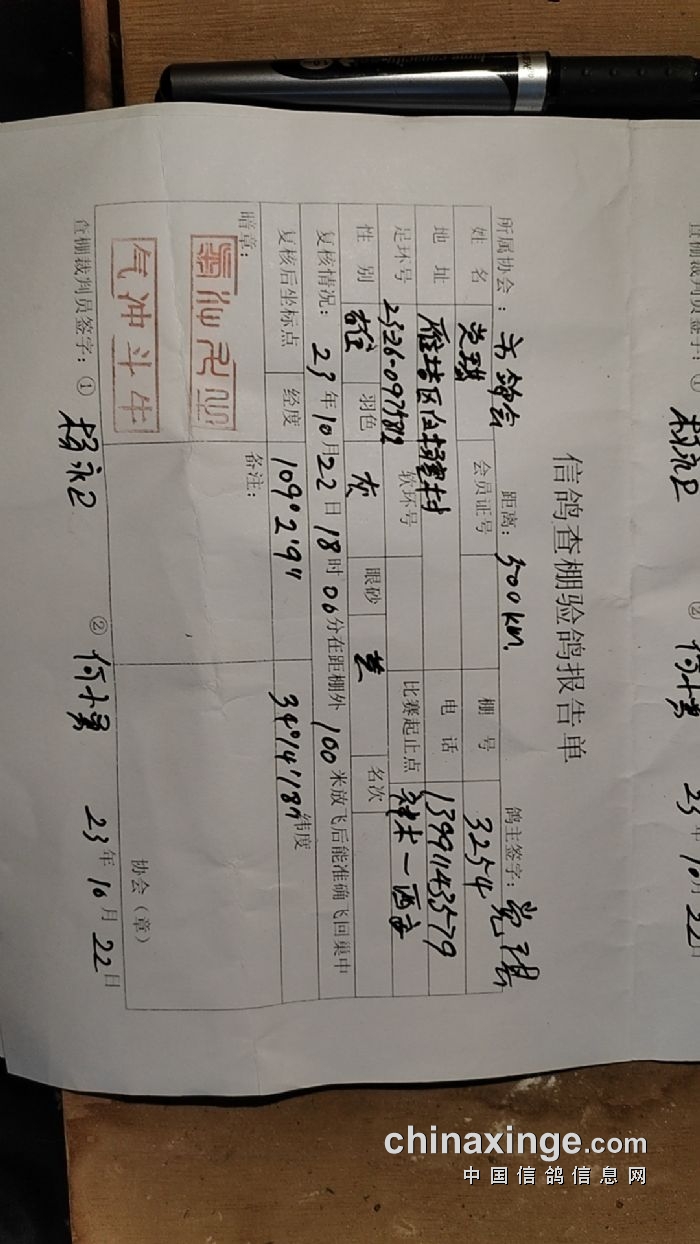 信鸽查棚验鸽报告单
所属协会: 市鸽会 距离: 500km. 鸽主签字: 党琪
姓名 党琪 会员证号 棚号 3254
地址 雁塔区 电话 13991143579
足环号 软环号 比赛起止点
性别 雄 羽色 灰 眼砂 名次
复核情况: 23年10月22日18时06分在距棚外100米放飞后能准确飞回巢中
复核后坐标点 经度 109°2'9" 34°14'18" 纬度
暗章: 备注:
气冲斗牛
协会(章)
查棚裁判员签字: ① 杨永卫 ② 何小勇 23年10月22日
查棚裁判员签字: ① 杨永卫 ② 何小勇 23年10月22日
chinaxinge.com
中国信鸽信息网